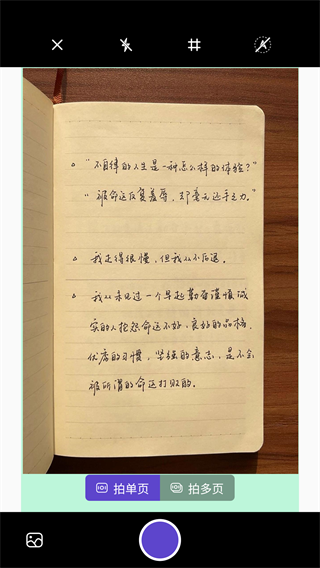 “不自律的人生是一种怎么样的体验？”
“被命运反复羞辱，却毫无还手之力。”
我走得很慢，但我从不后退。
我从未见过一个早起勤奋谨慎诚
实的人抱怨命运不好，良好的品格，
优秀的习惯，坚强的意志，是不会
被所谓的命运打败的。
拍单页
拍多页